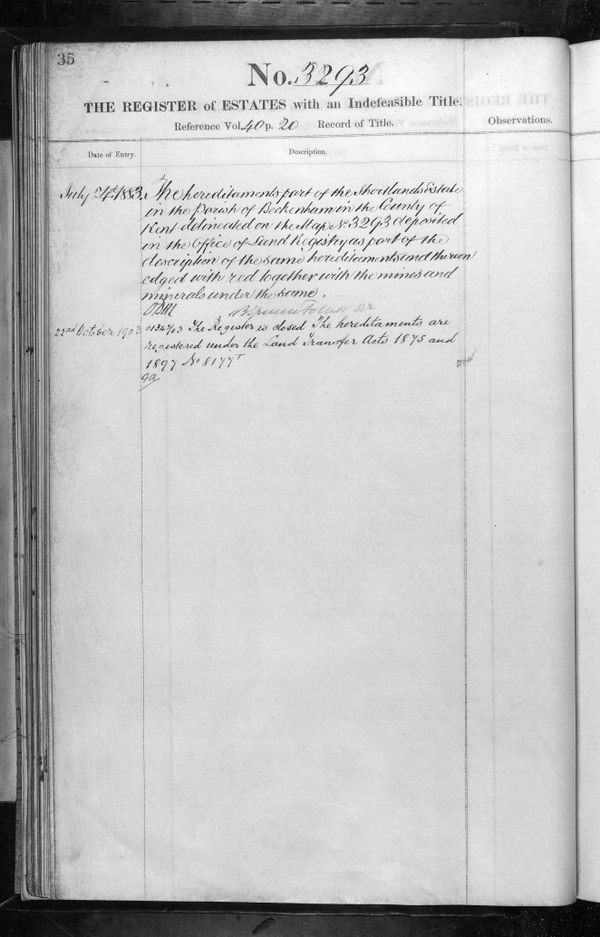 35
No. 3293
THE REGISTER of ESTATES with an Indefeasible Title.
Reference Vol. 40 p. 20 Record of Title.
Observations.
Date of Entry.
Description.
July 24th 1883. The hereditaments part of the Shortlands Estate
in the Parish of Beckenham in the County of
Kent delineated on the Map No 3293 deposited
in the Office of Land Registry as part of the
description of the same hereditaments and thereon
edged with red together with the mines and
minerals under the same.
22nd October 1903 The Register is closed The hereditaments are
registered under the Land Transfer Acts 1875 and
1897 No 8177